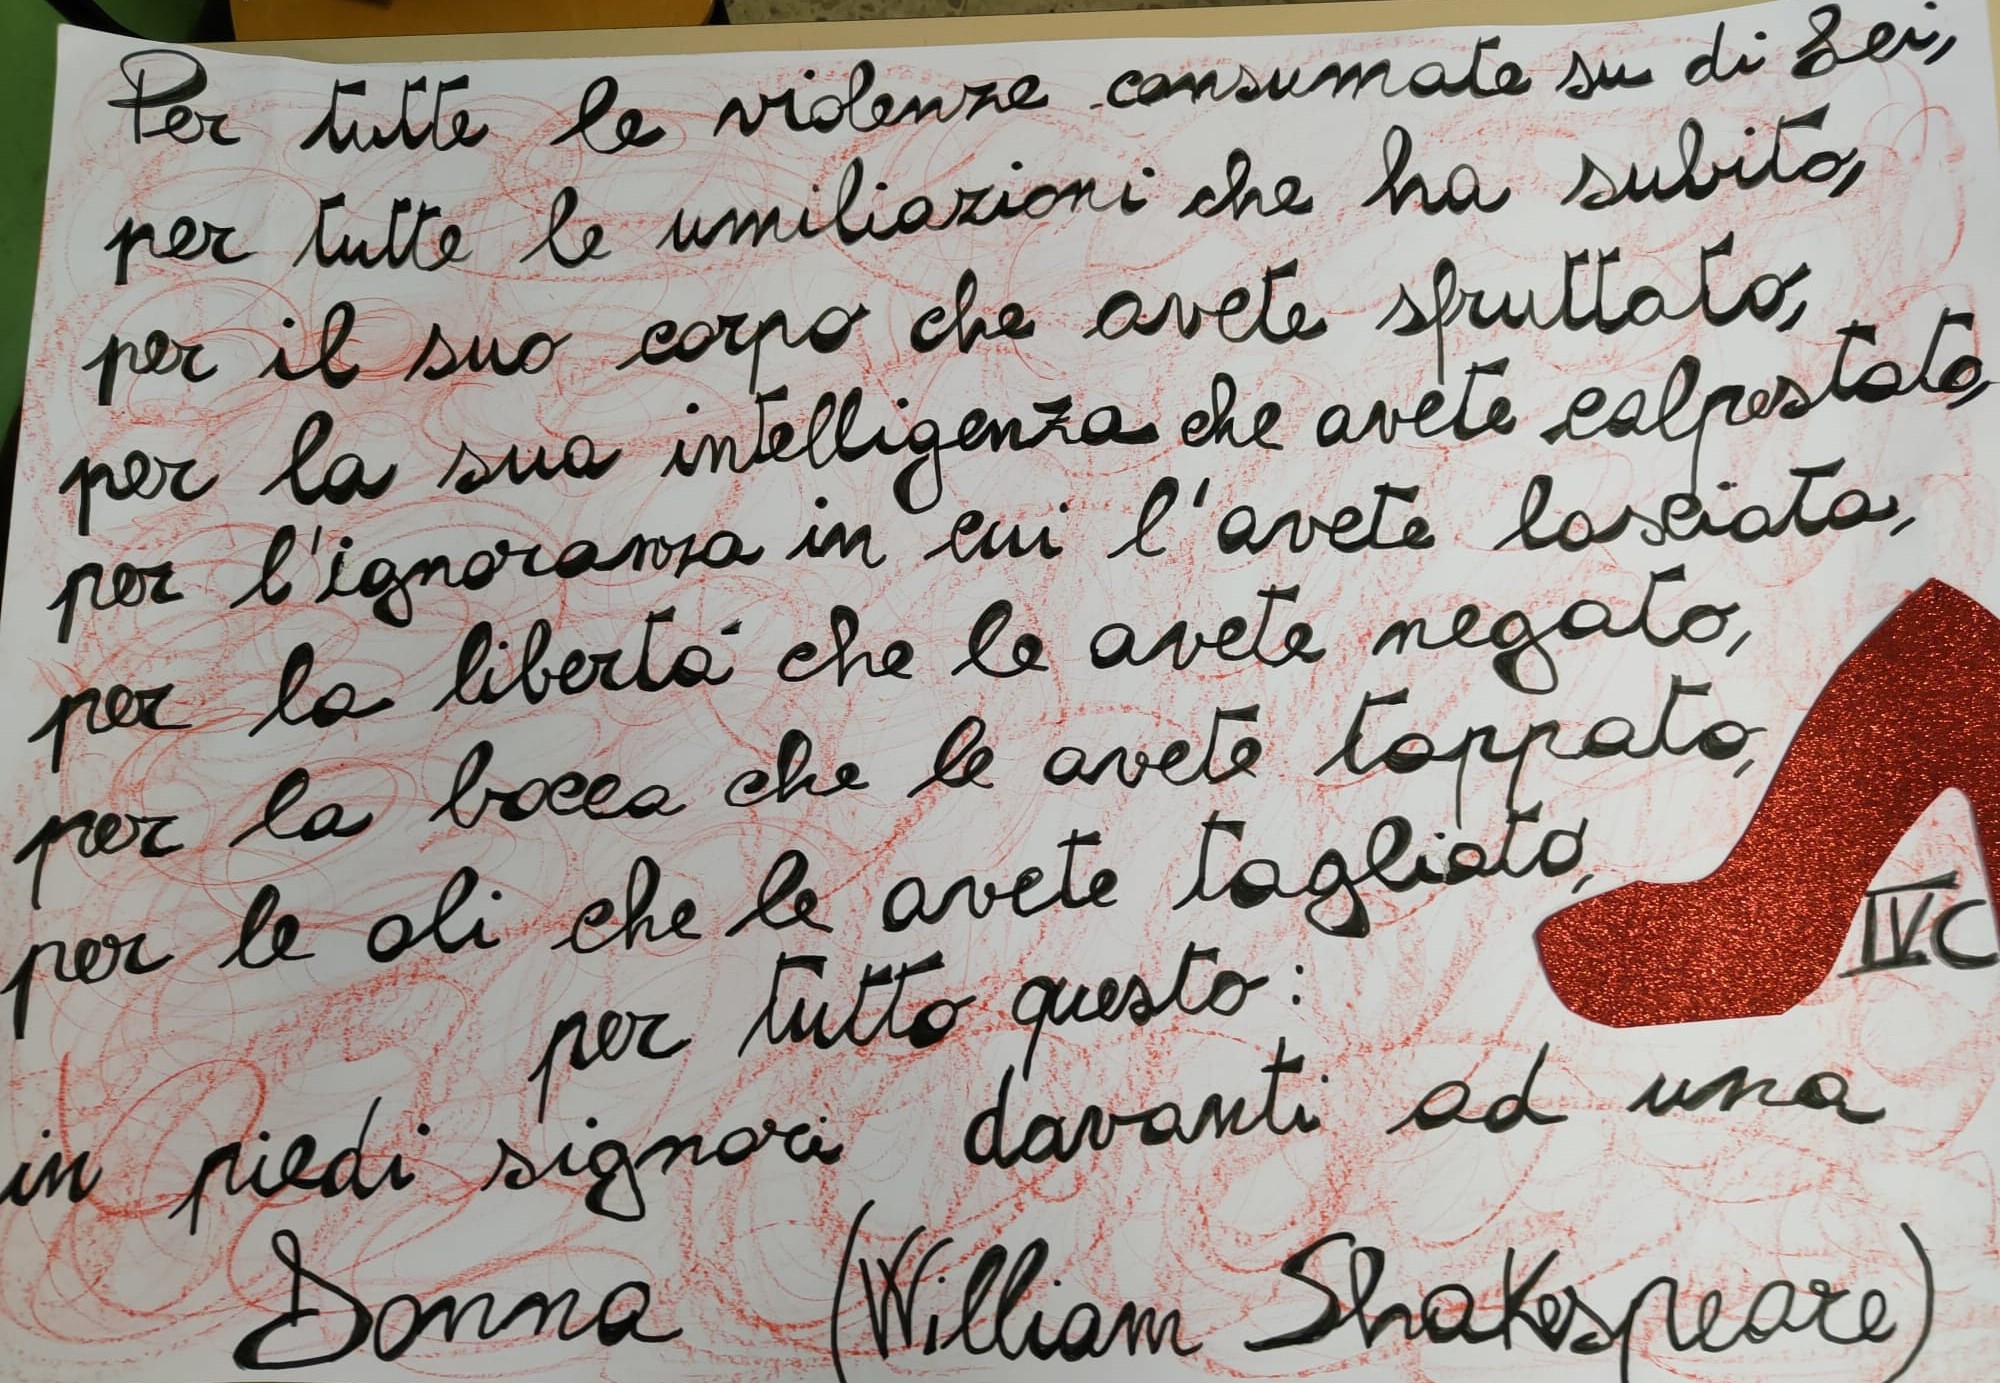 Per tutte le violenze consumate su di Lei,
per tutte le umiliazioni che ha subito,
per il suo corpo che avete sfruttato,
per la sua intelligenza che avete calpestato,
per l'ignoranza in cui l'avete lasciata,
per la libertà che le avete negato,
per la bocca che le avete tappato,
per le ali che le avete tagliato,
per tutto questo:
in piedi signori davanti ad una
Donna (William Shakespeare)
IV.C